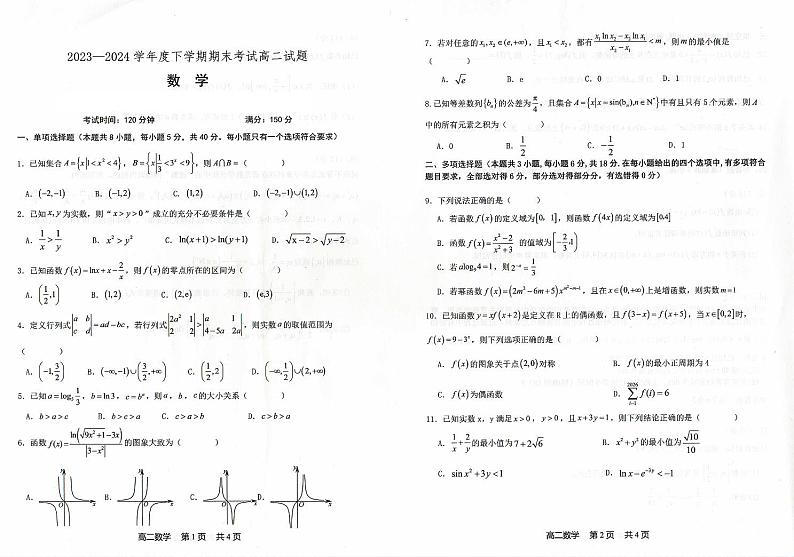 2023—2024 学年度下学期期末考试高二试题
数 学
考试时间：120 分钟 满分：150 分
一、单项选择题（本题共 8 小题，每小题 5 分，共 40 分。每小题只有一个选项符合要求）
1．已知集合 A={x|1<x²<4}，B={x|1/3<3ˣ<9}，则 A∩B=（ ）
A．(-2,-1) B．(-1,2) C．(1,2) D．(-2,-1)∪(1,2)
2．已知 x,y 为实数，则“x>y>0”成立的充分不必要条件是（ ）
A．1/x>1/y B．x²>y² C．ln(x+1)>ln(y+1) D．√(x-2)>√(y-2)
3．已知函数 f(x)=lnx+x-2/x，则 f(x) 的零点所在的区间为（ ）
A．(1/2,1) B．(1,2) C．(2,e) D．(e,3)
4．定义行列式 |a b; c d|=ad-bc，若行列式 |2a² 1; 2 2|>|a 1; 4-5a 2a|，则实数 a 的取值范围为
（ ）
A．(-1,3/2) B．(-∞,-1)∪(3/2,+∞) C．(1/2,2) D．(-∞,1/2)∪(2,+∞)
5．已知 a=log₃ 1/3，b=ln3，c=bᵉ，则 a，b，c 的大小关系（ ）
A．b>a>c B．b>c>a C．c>a>b D．c>b>a
6．函数 f(x)=ln(√(9x²+1)-3x)/|3-x²| 的图象大致为（ ）
A． B． C． D．
高二数学 第 1 页 共 4 页
7．若对任意的 x₁,x₂∈(e,+∞)，且 x₁<x₂，都有 (x₁lnx₂-x₂lnx₁)/(x₂-x₁)<m，则 m 的最小值是
（ ）
A．√e B．e C．0 D．1
8．已知等差数列{bₙ}的公差为 π/4，且集合 A={x|x=sin(bₙ),n∈N*} 中有且只有 5 个元素，则 A
中的所有元素之积为（ ）
A．0 B．1/2 C．-1/2 D．1
二、多项选择题（本题共 3 小题，每小题 6 分，共 18 分．在每小题给出的四个选项中，有多项符合
题目要求，全部选对得 6 分，部分选对得部分分，有选错得 0 分）
9．下列说法正确的是（ ）
A．若函数 f(x) 的定义域为[0，1]，则函数 f(4x) 的定义域为[0,4]
B．函数 f(x)=(x²-2)/(x²+3) 的值域为[-2/3,1)
C．若 alog₃4=1，则 2⁻ᵃ=1/3
D．若幂函数 f(x)=(2m²-6m+5)x^(m²-m-1)，且在 x∈(0,+∞) 上是增函数，则实数 m=1
10．已知函数 y=xf(x+2) 是定义在 R 上的偶函数，且 f(3-x)=f(x+5)，当 x∈[0,2] 时，
f(x)=9-3ˣ，则下列选项正确的是（ ）
A．f(x) 的图象关于点(2,0)对称 B．f(x) 的最小正周期为 4
C．f(x) 为偶函数 D．∑_(i=1)^2026 f(i)=6
11．已知实数 x，y 满足 x>0，y>0，且 x+3y=1，则下列结论正确的是（ ）
A．1/x+2/y 的最小值为 7+2√6 B．x²+y² 的最小值为 √10/10
C．sin x²+3y<1 D．ln x-e^(-3y)<-1
高二数学 第 2 页 共 4 页